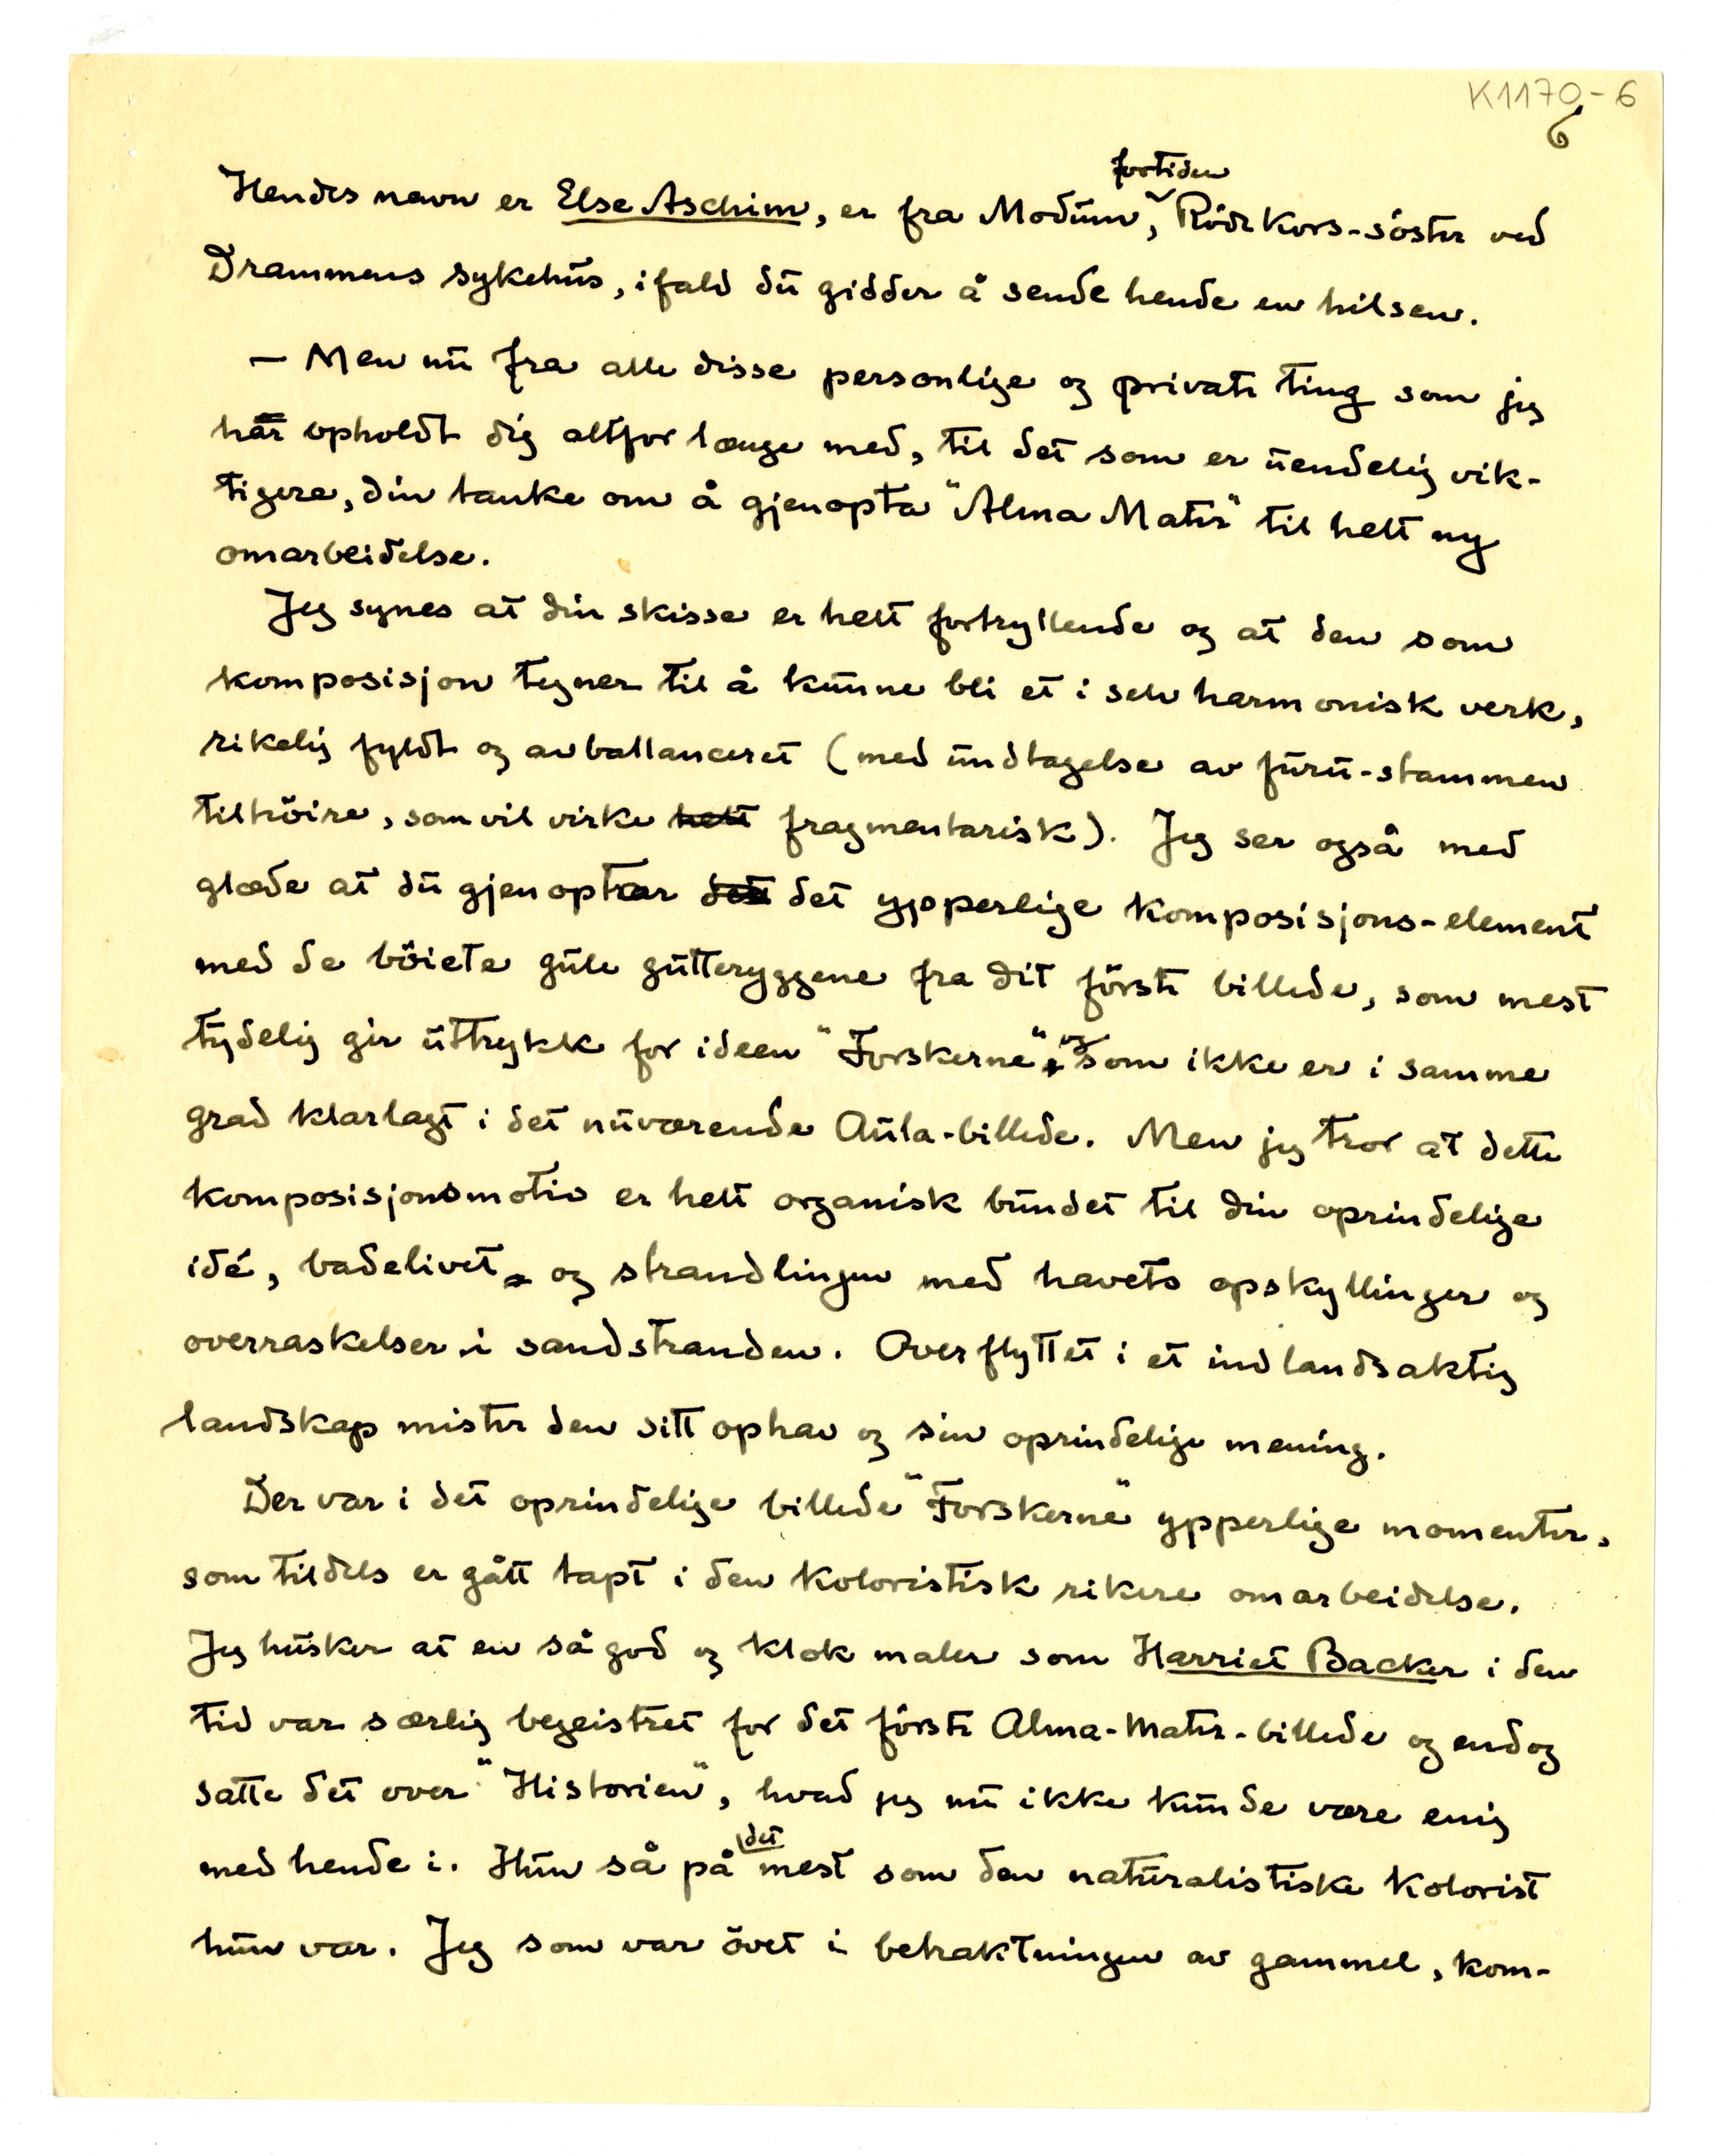 K1170-6
6
fortiden
Hendes navn er Else Aschim, er fra Modum, Röde Kors-söster ved
Drammens sykehus, ifald du gidder å sende hende en hilsen.
— Men nu fra alle disse personlige og private ting som jeg
har opholdt dig altfor længe med, til det som er uendelig vik-
tigere, din tanke om å gjenopta "Alma Mater" til helt ny
omarbeidelse.
Jeg synes at din skisse er helt fortryllende og at den som
komposisjon tegner til å kunne bli et i selv harmonisk verk,
rikelig fyldt og avballanceret (med undtagelse av furu-stammen
tilhöire, som vil virke helt fragmentarisk). Jeg ser også med
glæde at du gjenoptar det det ypperlige komposisjons-element
med de böiete gule gutteryggene fra dit förste billede, som mest
tydelig gir uttrykk for ideen "Forskerne", og som ikke er i samme
grad klarlagt i det nuværende Aula-billede. Men jeg tror at dette
komposisjonsmotiv er helt organisk bundet til din oprindelige
idé, badelivet og strandlingen med havets opskyllinger og
overraskelser i sandstranden. Overflyttet i et indlandsaktig
landskap mister den sitt ophav og sin oprindelige mening.
Der var i det oprindelige billede "Forskerne" ypperlige momenter,
som tildels er gått tapt i den koloristisk rikere omarbeidelse.
Jeg husker at en så god og klok maler som Harriet Backer i den
tid var særlig begeistret for det förste Alma-Mater-billede og endog
satte det over "Historien", hvad jeg nu ikke kunde være enig
med hende i. Hun så på det mest som den naturalistiske kolorist
hun var. Jeg som var övet i betraktningen av gammel, kom-